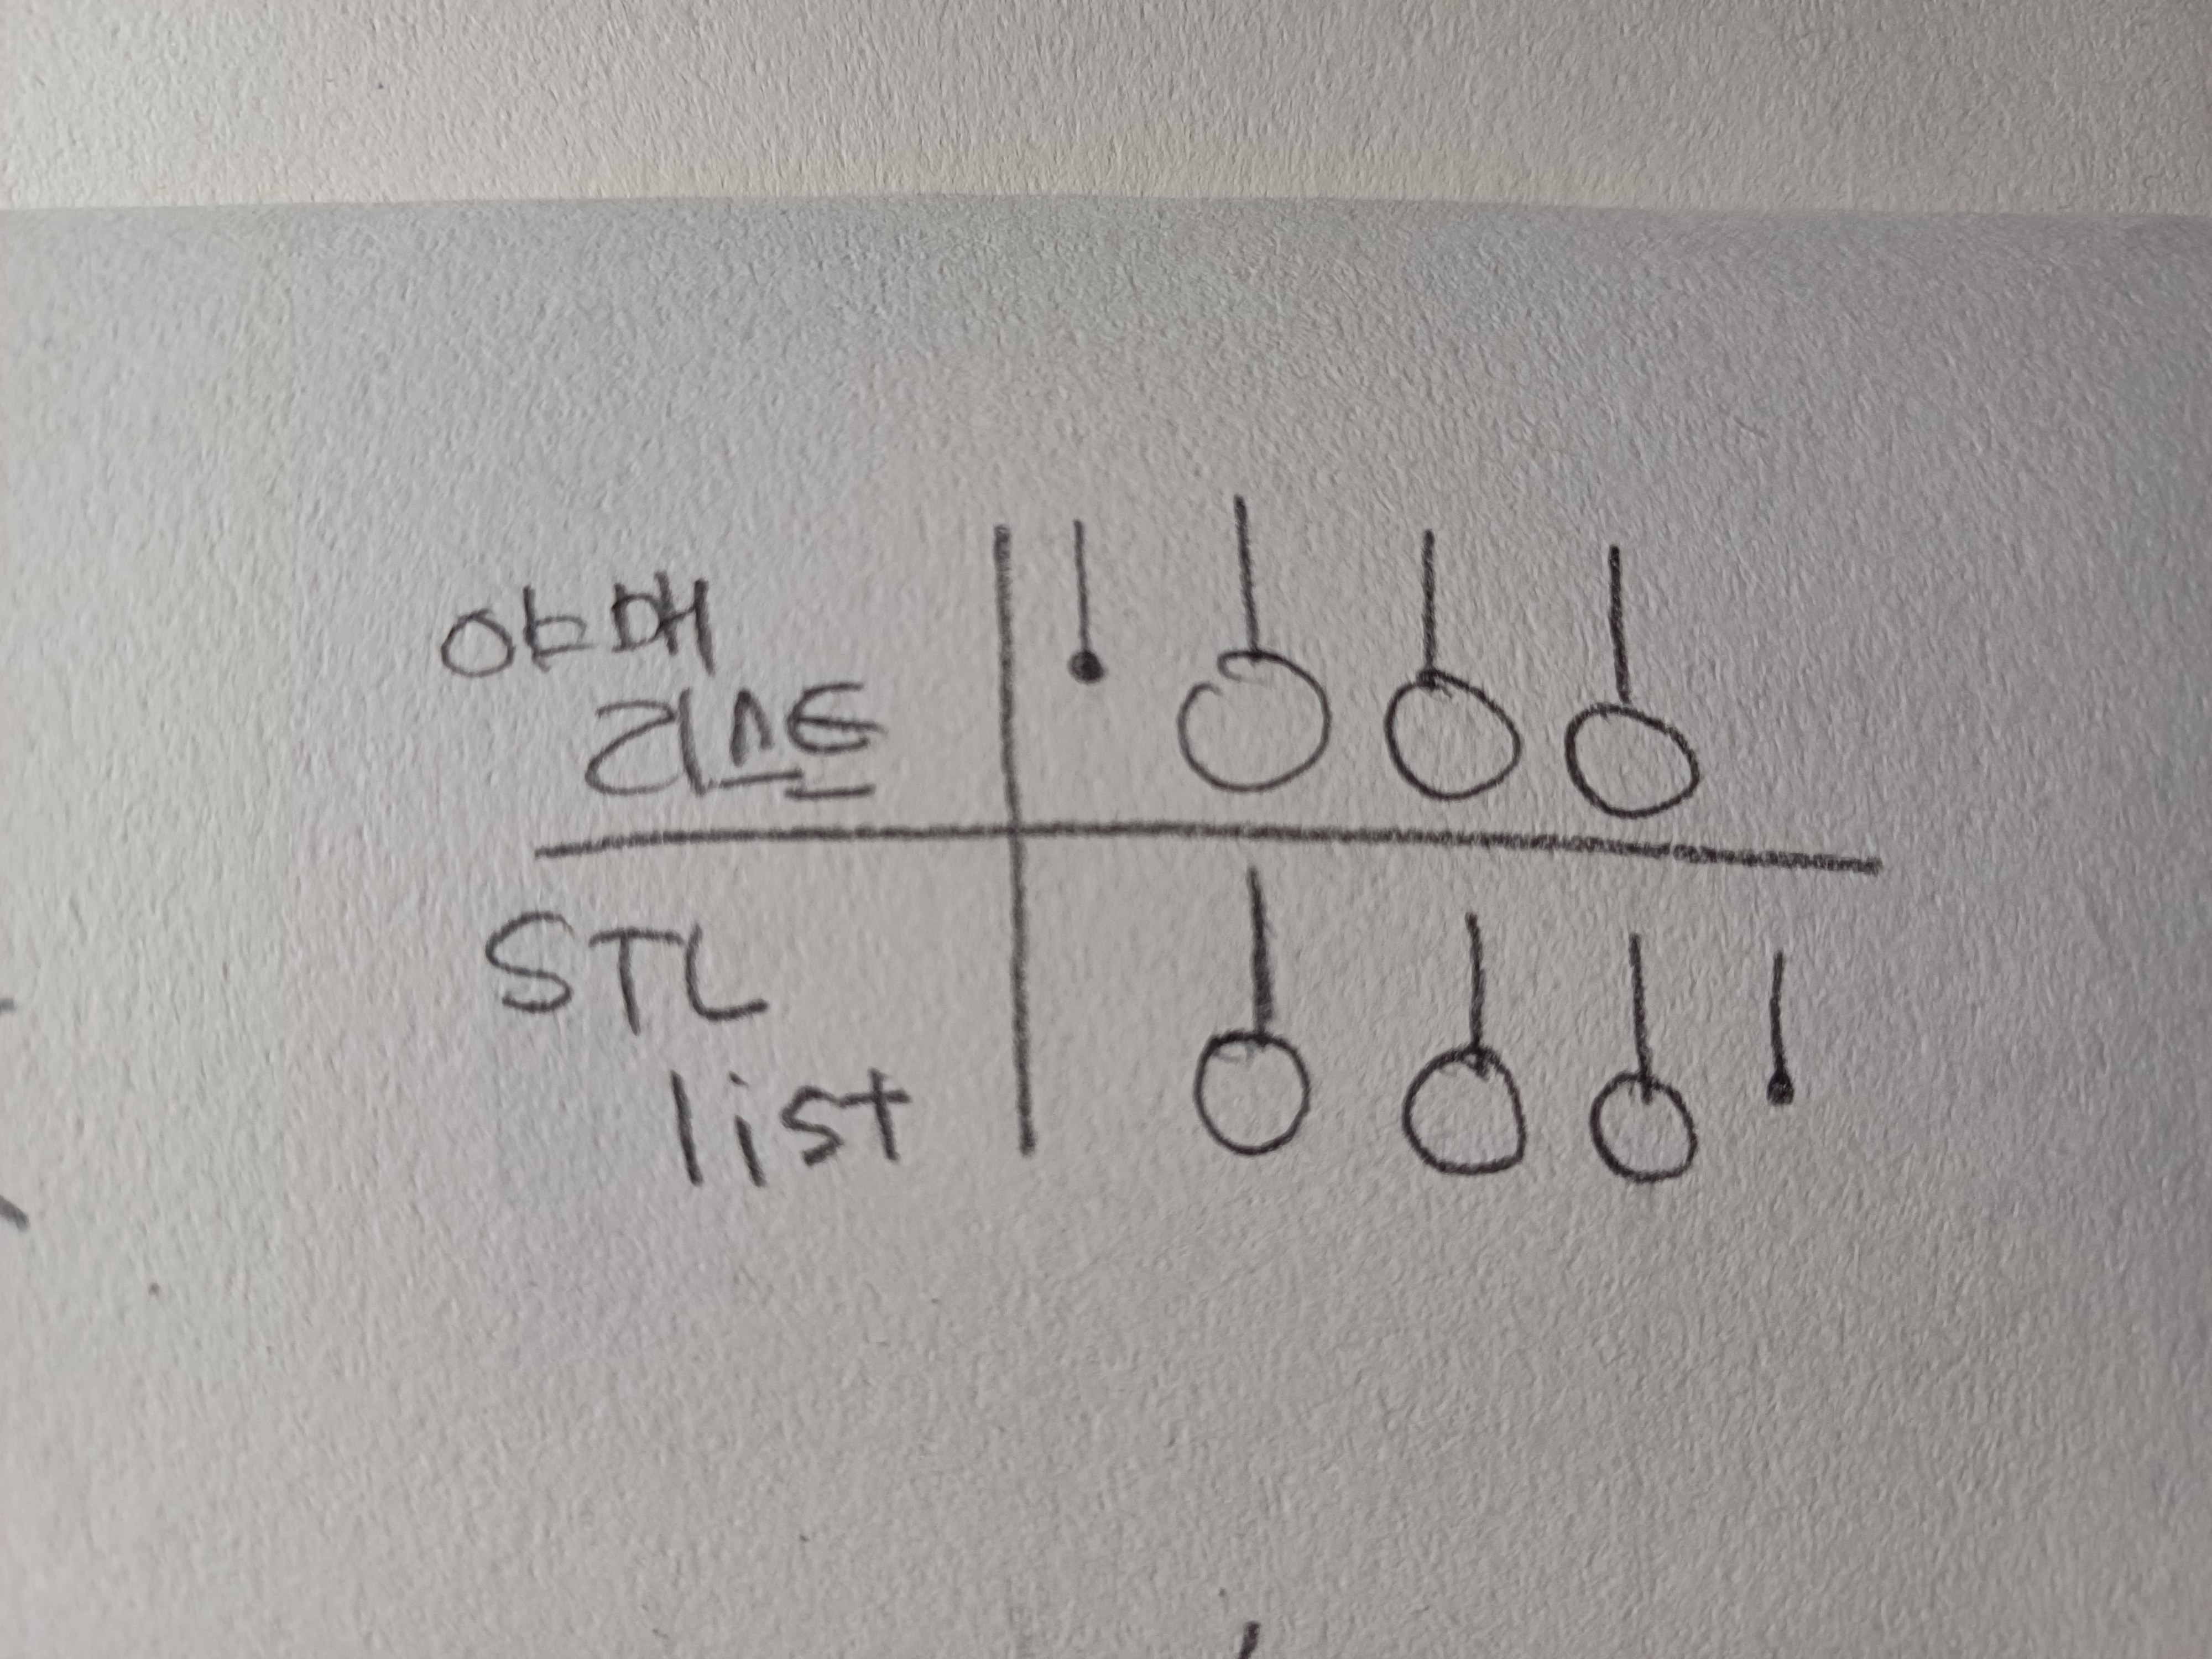 야매
리스트
STL
list